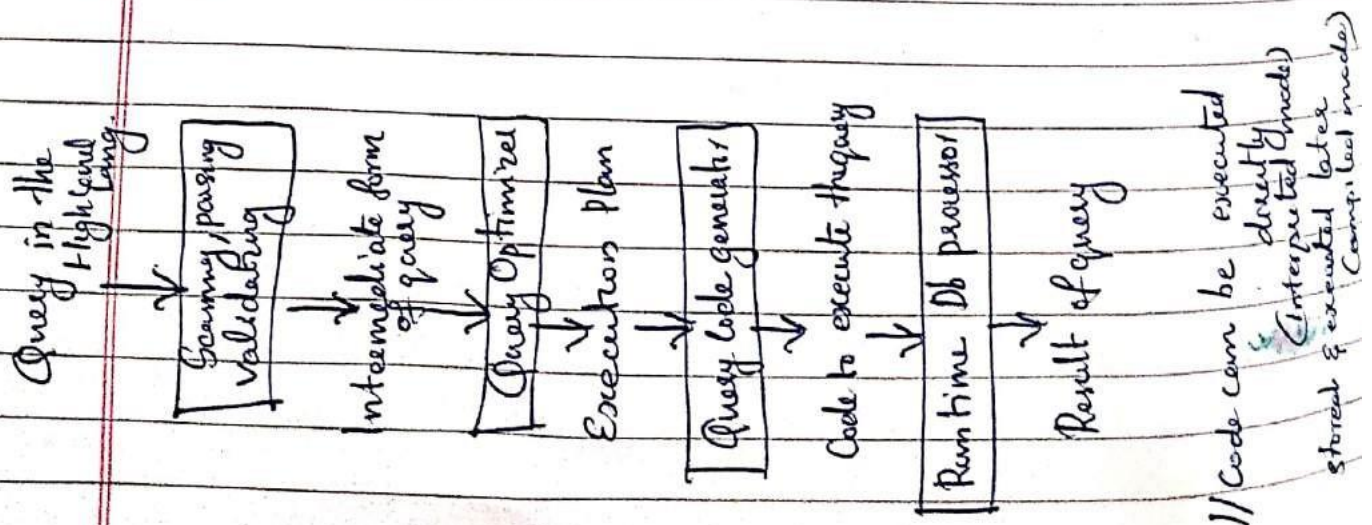 Query in the
High level
Lang.
Scanning, parsing
validating
Intermediate form
of query
Query Optimizer
Execution plan
Query Code generator
Code to execute the query
Runtime Db processor
Result of query
// Code can be executed
directly
(Interpreted mode)
stored & executed later
Compiled mode)